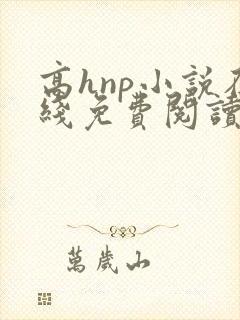 高hnp小説在
綫免費閱讀
萬歲山